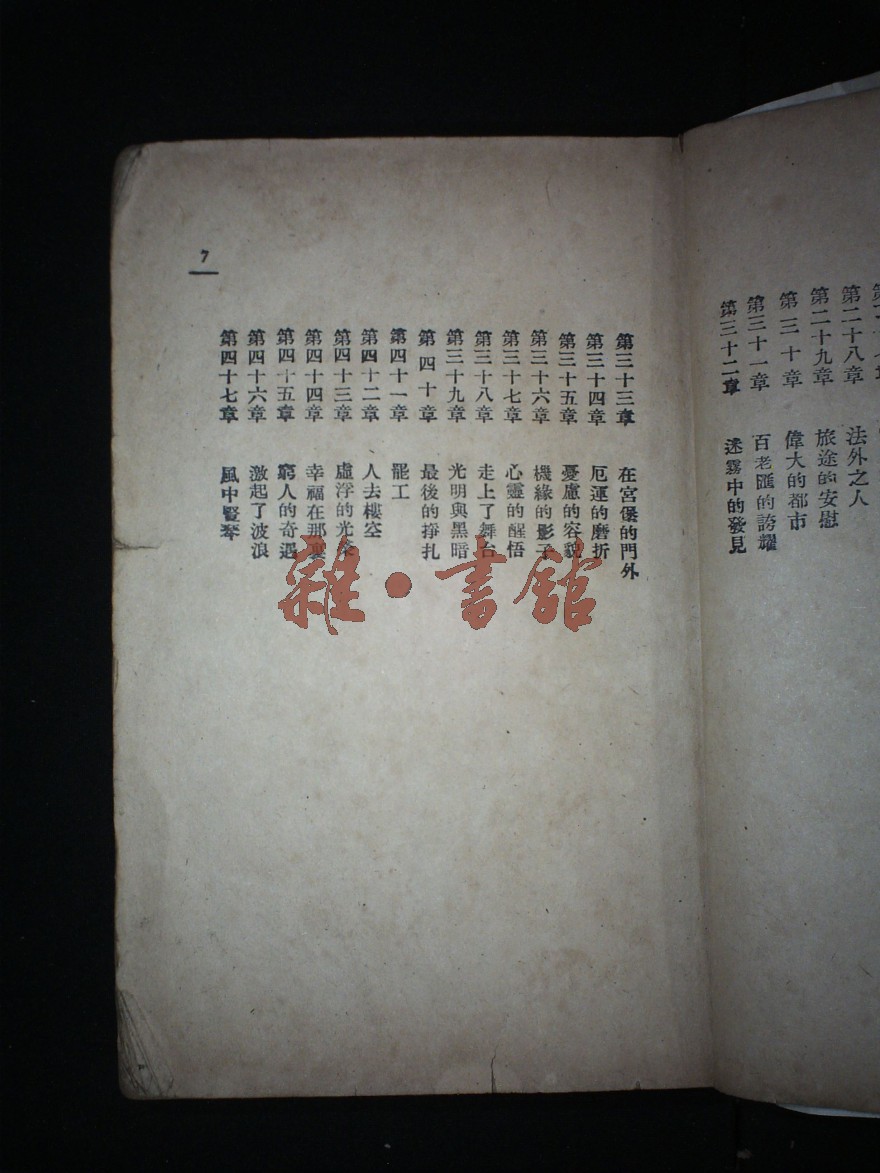 第二十八章 法外之人
第二十九章 旅途的安慰
第三十章 偉大的都市
第三十一章 百老匯的誇耀
第三十二章 迷霧中的發見
7
第三十三章 在宮堡的門外
第三十四章 厄運的磨折
第三十五章 憂慮的容貌
第三十六章 機緣的影子
第三十七章 心靈的醒悟
第三十八章 走上了舞台
第三十九章 光明與黑暗
第四十章 最後的掙扎
第四十一章 罷工
第四十二章 人去樓空
第四十三章 虛浮的光采
第四十四章 幸福在那裏
第四十五章 窮人的奇遇
第四十六章 激起了波浪
第四十七章 風中豎琴
雜·書館